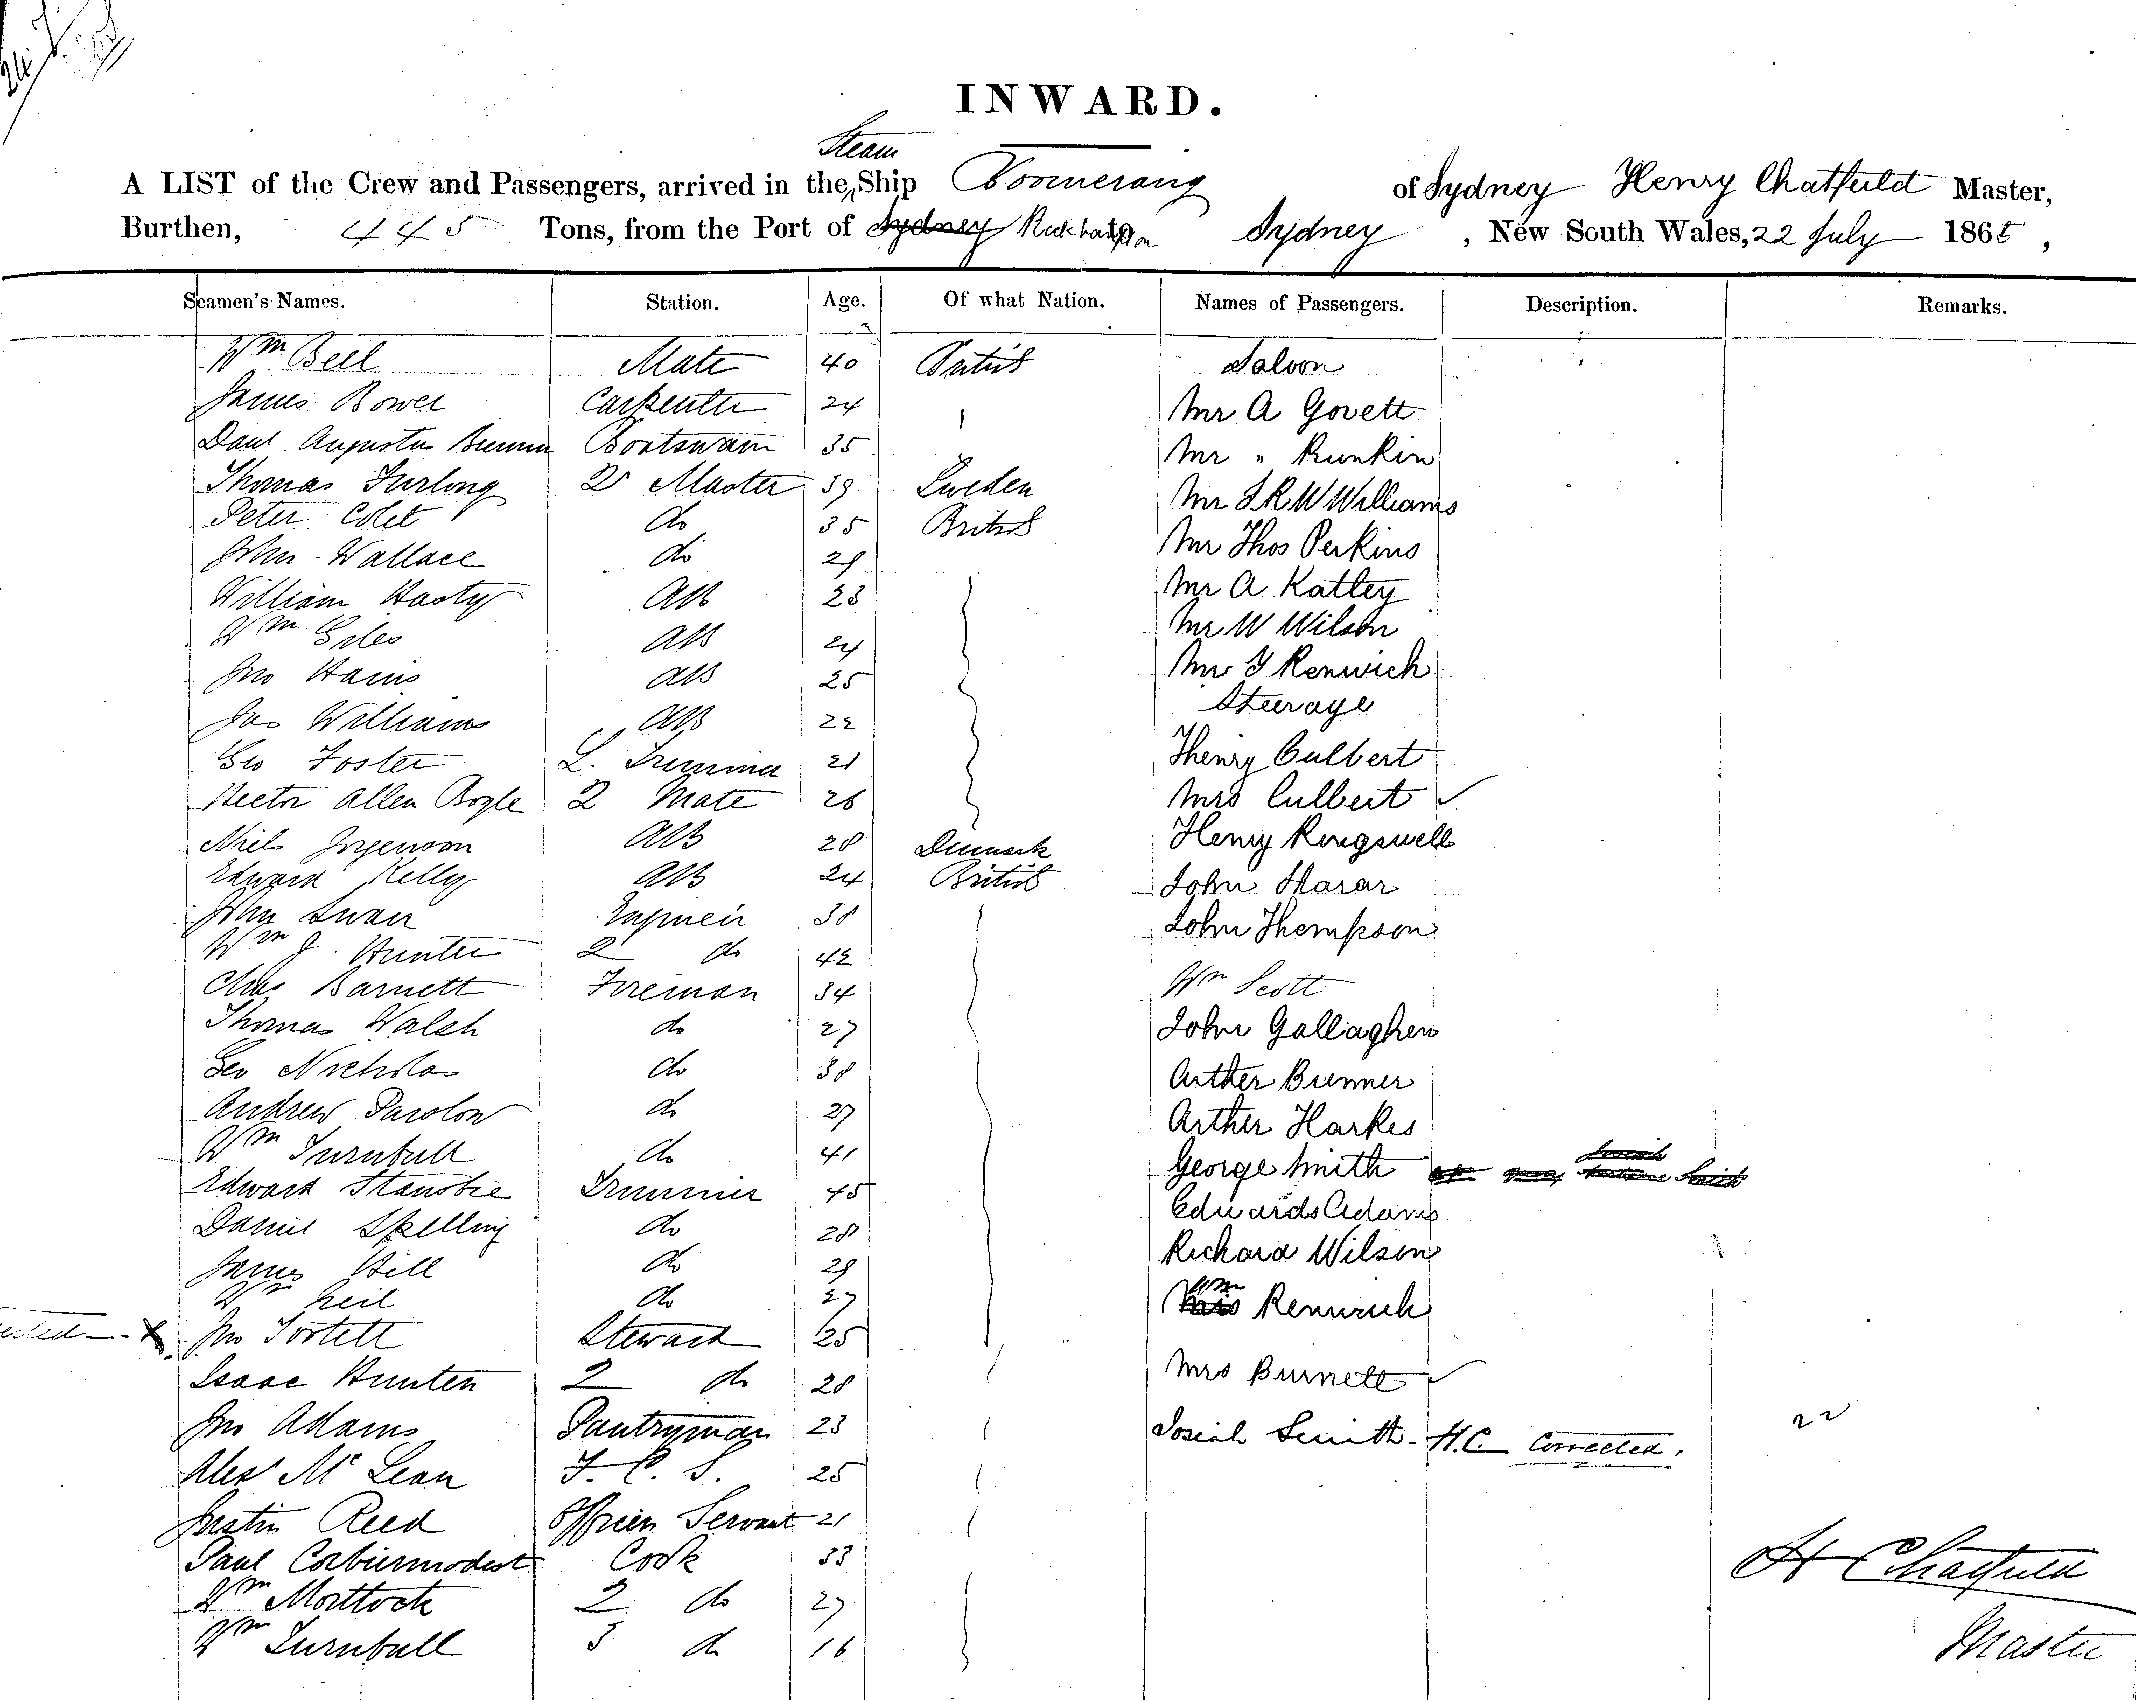 INWARD.
Steam
A LIST of the Crew and Passengers, arrived in the Ship Boomerang of Sydney Henry Chatfield Master,
Burthen, 445 Tons, from the Port of Sydney Rockhampton Sydney, New South Wales, 22 July 1865,
Seamen's Names. Station. Age. Of what Nation. Names of Passengers. Description. Remarks.
Wm Bell Mate 40 British Saloon
James Bower Carpenter 24 Mr A Govett
Augustus Boatswain 35 Mr " Runkin
Thomas Furlong 2 Master 39 Sweden Mr S R W Williams
Peter Colet do 35 British Mr Thos Perkins
John Wallace do 29 Mr A Katley
William Hasty AB 23 Mr W Wilson
Wm Giles AB 24 Mr J Renwick
Jno Hains AB 25 Steerage
Jas Williams AB 22 Henry Culbert
Geo Foster L. Trimmer 21 Mrs Culbert
Hector Allen Boyle 2 Mate 26 Henry Kingswell
AB 28 Denmark John Harar
Edward Kelly AB 24 British John Thompson
John Swan Engineir 38 Wm Scott
Wm J. Hunter 2 do 42 John Gallaghen
Chas Barnett Fireman 34 Arther Brenner
Thomas Walsh do 27 Arther Harkes
Geo Nicholas do 38 George Smith
Andrew do 27 Edwards Adams
Wm Turnbull do 41 Richard Wilson
Edward Stansbie Trimmer 45 Wm Renwick
Daniel Spelling do 28 Mrs Burnett
James Hill do 29 Josiah Smith - H.C. Corrected.
Wm Neil do 27
X Jno Tortell Steward 25
Isaac Hunten 2 do 28
Jno Adams Pantryman 23
Alex McLean F. C. S. 25
Justin Reed Officers Servant 21
Paul Corbiermodest Cook 33
Wm Mottock 2 do 27
Wm Turnbull 3 do 16
22
H Chatfield
Master